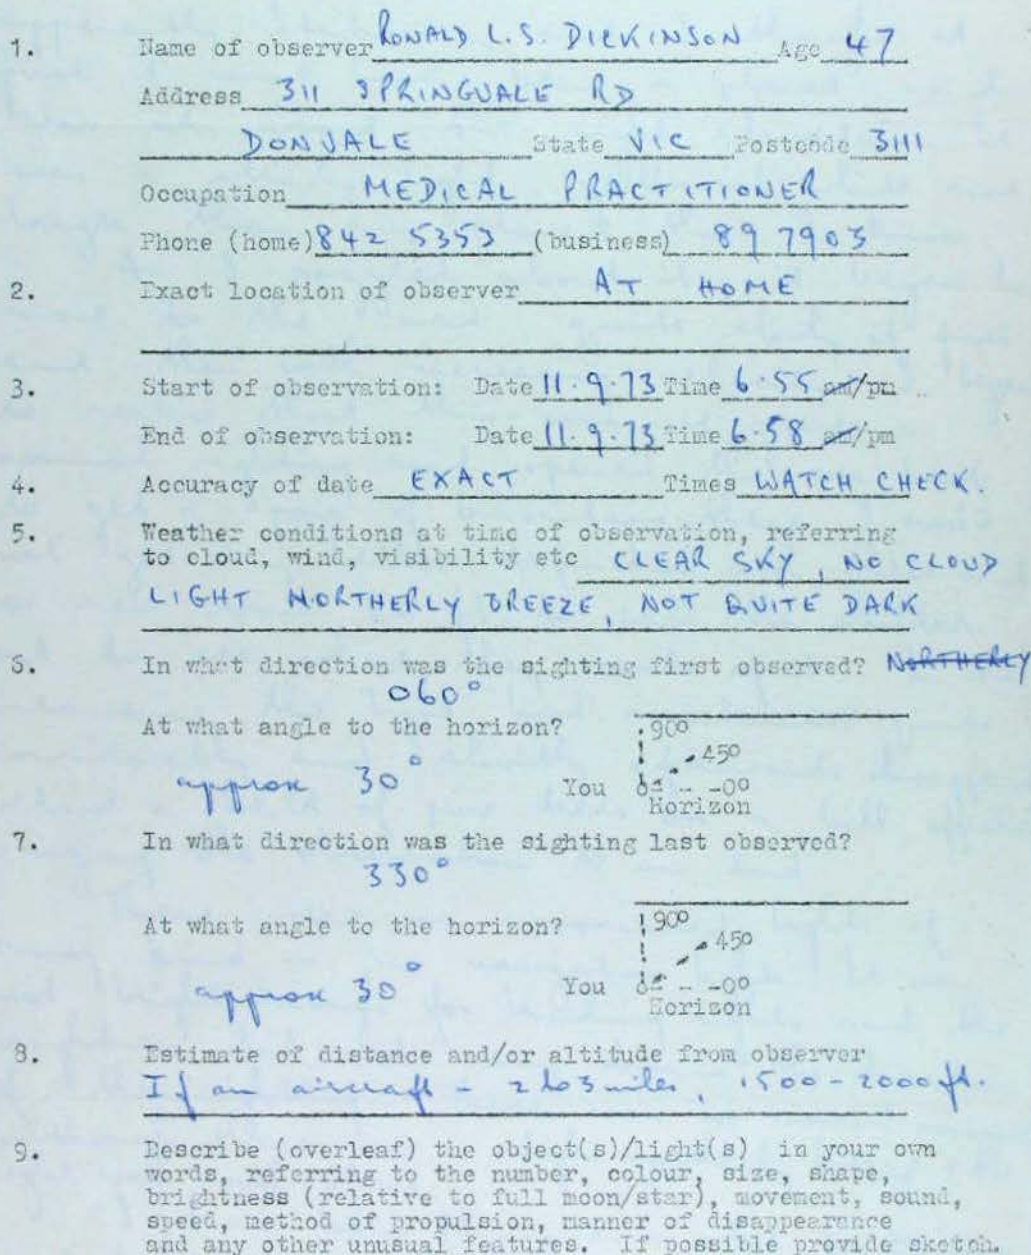 1. Name of observer RONALD L.S. DICKINSON Age 47
Address 311 SPRINGVALE RD
DONVALE State VIC Postcode 3111
Occupation MEDICAL PRACTITIONER
Phone (home) 842 5353 (business) 89 7903
2. Exact location of observer AT HOME
3. Start of observation: Date 11.9.73 Time 6.55 am/pm
End of observation: Date 11.9.73 Time 6.58 am/pm
4. Accuracy of date EXACT Times WATCH CHECK.
5. Weather conditions at time of observation, referring
to cloud, wind, visibility etc CLEAR SKY, NO CLOUD
LIGHT NORTHERLY BREEZE, NOT QUITE DARK
6. In what direction was the sighting first observed? NORTHERLY
060°
At what angle to the horizon? 90°
45°
approx 30° You -0°
Horizon
7. In what direction was the sighting last observed?
330°
At what angle to the horizon? 90°
45°
approx 30° You -0°
Horizon
8. Estimate of distance and/or altitude from observer
If an aircraft - 2 to 3 miles, 1500 - 2000 ft.
9. Describe (overleaf) the object(s)/light(s) in your own
words, referring to the number, colour, size, shape,
brightness (relative to full moon/star), movement, sound,
speed, method of propulsion, manner of disappearance
and any other unusual features. If possible provide sketch.